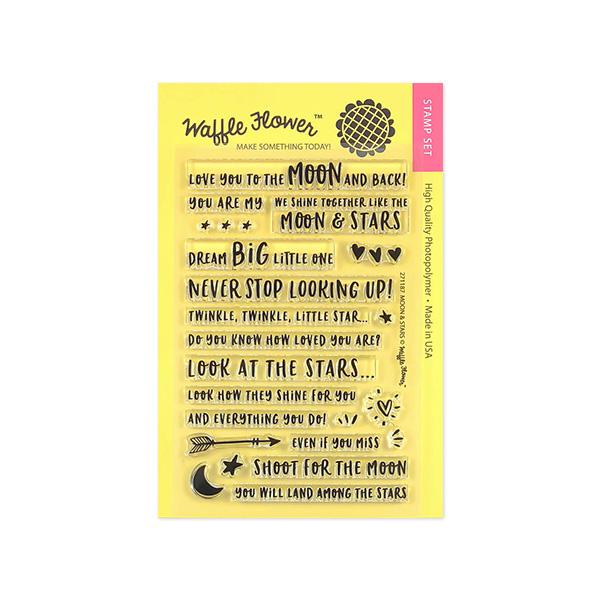 Waffle Flower™
MAKE SOMETHING TODAY!
STAMP SET
High Quality Photopolymer • Made in USA
271187 MOON & STARS © Waffle Flower
LOVE YOU TO THE MOON AND BACK!
YOU ARE MY
WE SHINE TOGETHER LIKE THE
MOON & STARS
DREAM BIG LITTLE ONE
NEVER STOP LOOKING UP!
TWINKLE, TWINKLE, LITTLE STAR...
DO YOU KNOW HOW LOVED YOU ARE?
LOOK AT THE STARS...
LOOK HOW THEY SHINE FOR YOU
AND EVERYTHING YOU DO!
EVEN IF YOU MISS
SHOOT FOR THE MOON
YOU WILL LAND AMONG THE STARS